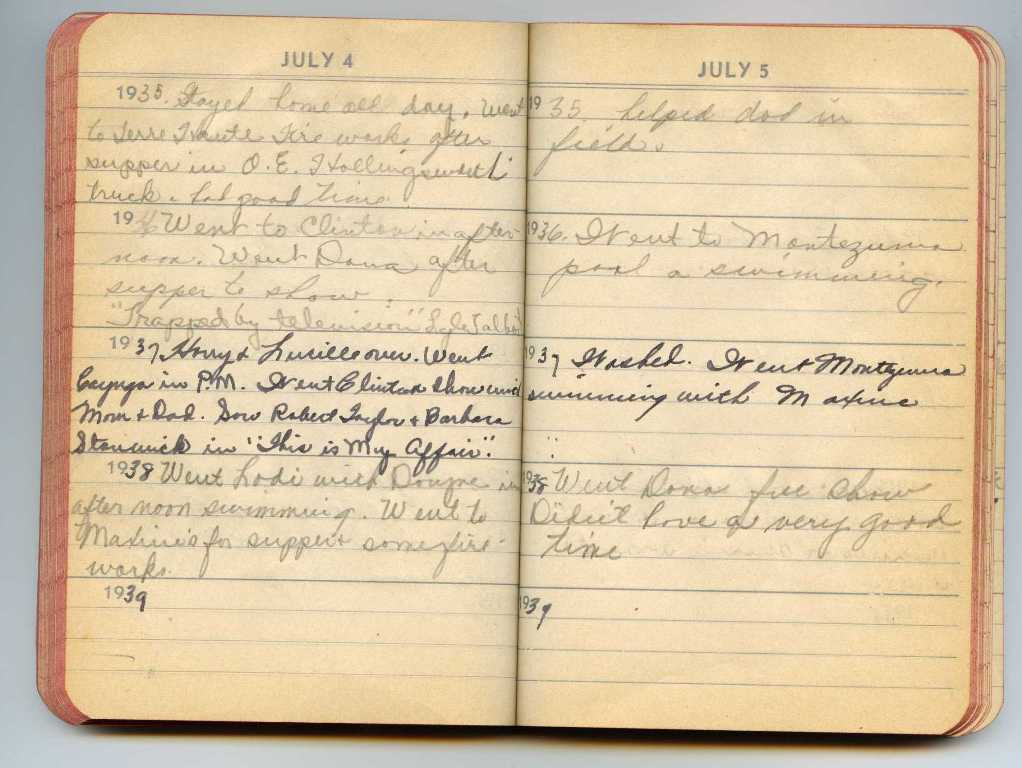 JULY 4
1935. Stayed home all day. Went
to Terre Haute Fire works after
supper in O. E. Hollingsworth
truck. had good time.
19 Went to Clinton in after-
noon. Went Dana after
supper to show.
"Trapped by television" Lyle Talbot
1937 Harry & Lucille over. Went
Cayuga in P.M. Went Clinton show with
Mom & Dad. Saw Robert Taylor & Barbara
Stanwick in "This is My Affair".
1938 Went Lodi with in
after noon swimming. Went to
Maxine's for supper & some fire
works.
1939
JULY 5
1935. helped dad in
field.
1936. Went to Montezuma
pool a swimming.
1937 Washed. Went Montezuma
swimming with Maxine
1938 Went Dana free show
Didn't have a very good
time
1939